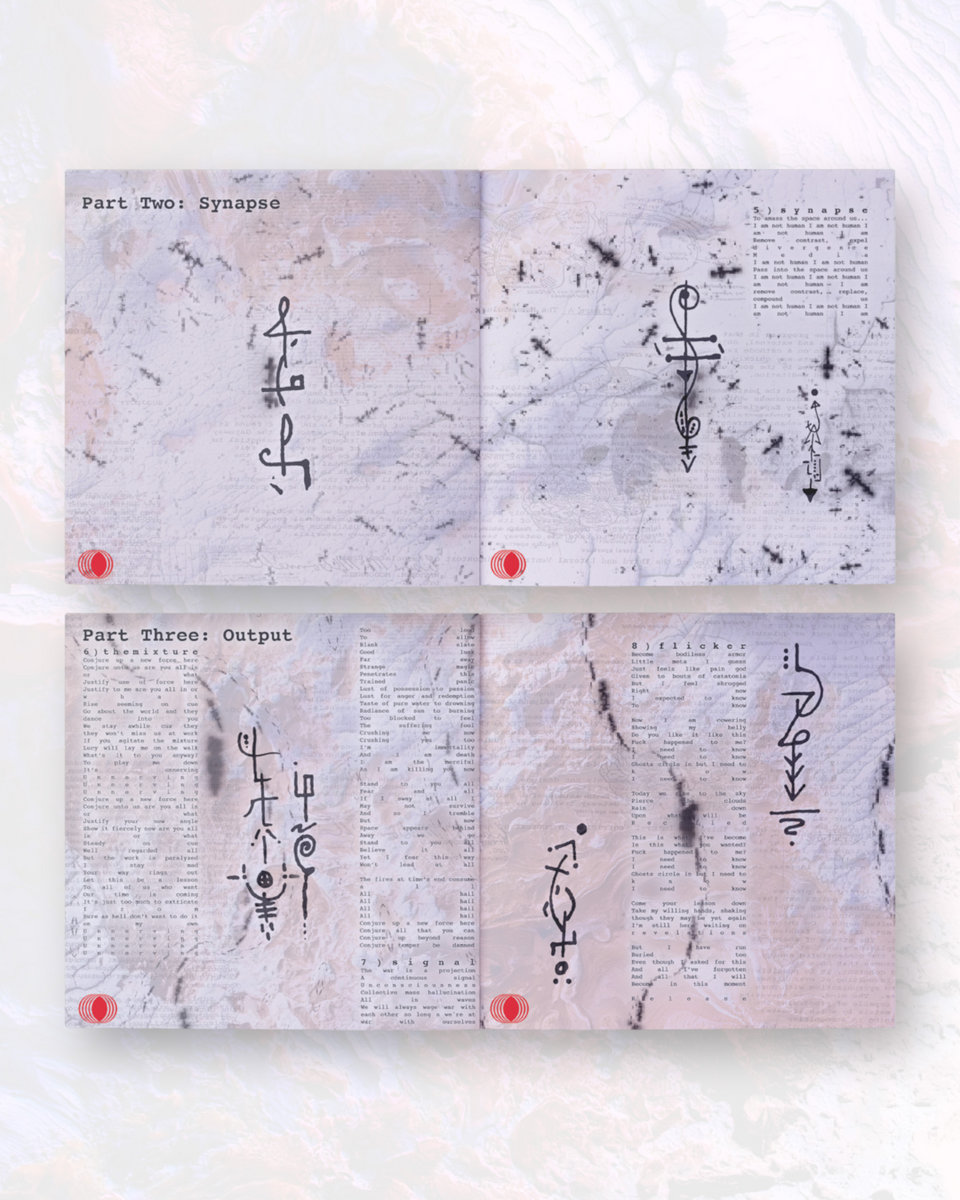 Part Two: Synapse
5)synapse
To amass the space around us...
I am not human I am not human I
am not human I am
Remove contrast, expel
divergence
Media
I am not human I am not human
Pass into the space around us
I am not human I am not human I
am not human I am
remove contrast, replace,
compound us
I am not human I am not human I
am not human I am
Part Three: Output
6)themixture
Conjure up a new force here
Conjure unto us are you all in
or what
Justify use of force here
Justify to me are you all in or
what
Rise seeming on cue
Go about the world and they
dance into you
We stay awhile cuz they
they won't miss us at work
If you agitate the mixture
Lucy will lay me on the walk
What's it to you anyway
To play me down
It's unnerving
Unnerving
Unnerving
Unnerving
Conjure up a new force here
Conjure unto us are you all in
or what
Justify your new angle
Show it fiercely now are you all
in or what
Steady on cue
Well regarded all
But the work is paralyzed
I stay mad
Your way rings out
Let this be a lesson
To all of us who want
Our time is coming
It's just too much to extricate
from
Sure as hell don't want to do it
on my own
Unnerving
Unnerving
Unnerving
Too loud
To allow
Blank slate
Good lusk
Far away
Strange magic
Penetrates this
Trained panic
Lust of possession to passion
Lust for anger and redemption
Taste of pure water to drowning
Radiance of sun to burning
Too blocked to feel
The suffering fool
Crushing me now
Crushing you too
I'm immortality
And am death
I am the merciful
As I am killing you now
Stand to you all
Fear and all
If I away at all I
May not survive
And so I tremble
But now
Space appears behind
Away we go
Stand to you all
Believe it all
Yet I fear this way
Won't lead us all
The fires at time's end consume
all
All hail
All hail
All hail
All hail
Conjure up a new force here
Conjure all that you can
Conjure up beyond reason
Conjure temper be damned
7)signal
The war is a projection
A continuous signal
Unconsciousness
Collective mass hallucination
All in waves
We will always wage war with
each other so long as we're at
war with ourselves
8)flicker
Become bodiless armor
Little meta I guess
Just feels like pain god
Given to bouts of catatonia
But I feel shrugged
Right now
I expected to know
To know
Now I am cowering
Showing my belly
Do you like it like this
Fuck happened to me?
I need to know
I need to know
Ghosts circle in but I need to
know
I need to know
Today we be to the sky
Pierce the clouds
Rain down
Upon what will be
Second
This is what I've become
Is this what you wanted?
Fuck happened to me?
I need to know
I need to know
Ghosts circle in but I need to
know
I need to know
Come your lesson down
Take my willing hands, shaking
though they may be yet again
I'm still here waiting on
revelations
But I have run
Buried too
Even though I asked for this
And all I've forgotten
And all that I will
Become in this moment
Release